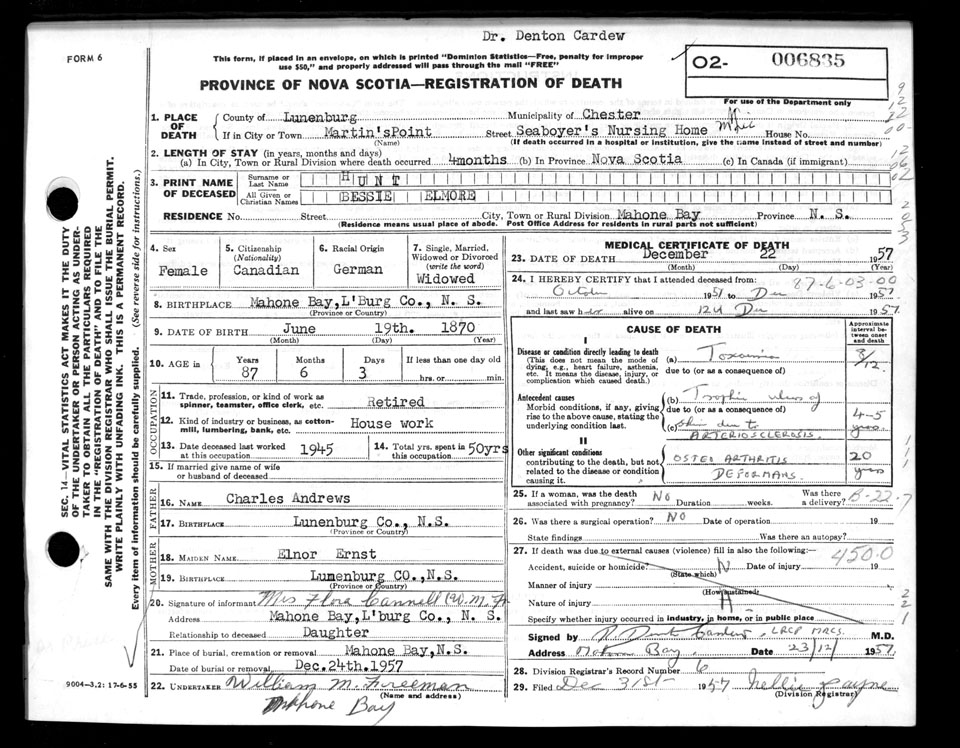 Dr. Denton Cardew
FORM 6
This form, if placed in an envelope, on which is printed "Dominion Statistics—Free, penalty for improper
use $50," and properly addressed will pass through the mail "FREE"
O2- 006835
PROVINCE OF NOVA SCOTIA—REGISTRATION OF DEATH
For use of the Department only
1. PLACE OF DEATH
County of Lunenburg Municipality of Chester
If in City or Town Martin'sPoint Street Seaboyer's Nursing Home House No.
(Name) (If death occurred in a hospital or institution, give the name instead of street and number)
2. LENGTH OF STAY (in years, months and days)
(a) In City, Town or Rural Division where death occurred 4months (b) In Province Nova Scotia (c) In Canada (if immigrant)
3. PRINT NAME OF DECEASED
Surname or Last Name HUNT
All Given or Christian Names BESSIE ELMORE
RESIDENCE No. Street City, Town or Rural Division Mahone Bay Province N. S.
(Residence means usual place of abode. Post Office Address for residents in rural parts not sufficient)
4. Sex Female
5. Citizenship (Nationality) Canadian
6. Racial Origin German
7. Single, Married, Widowed or Divorced (write the word) Widowed
8. BIRTHPLACE Mahone Bay,L'Burg Co., N. S.
(Province or Country)
9. DATE OF BIRTH June 19th. 1870
(Month) (Day) (Year)
10. AGE in Years Months Days If less than one day old
87 6 3 hrs. or min.
OCCUPATION
11. Trade, profession, or kind of work as
spinner, teamster, office clerk, etc. Retired
12. Kind of industry or business, as cotton-
mill, lumbering, bank, etc. House work
13. Date deceased last worked at this occupation 1945
14. Total yrs. spent in this occupation 50yrs
15. If married give name of wife
or husband of deceased
FATHER
16. NAME Charles Andrews
17. BIRTHPLACE Lunenburg Co., N.S.
(Province or Country)
MOTHER
18. MAIDEN NAME Elnor Ernst
19. BIRTHPLACE Lumenburg CO.,N.S.
(Province or Country)
20. Signature of informant Mrs Flora Cannell
Address Mahone Bay,L'burg Co., N. S.
Relationship to deceased Daughter
21. Place of burial, cremation or removal Mahone Bay,N.S.
Date of burial or removal Dec.24th.1957
22. UNDERTAKER William M. Freeman
(Name and address)
Mahone Bay
9004-3,2: 17-6-55
SEC. 14—VITAL STATISTICS ACT MAKES IT THE DUTY
OF THE UNDERTAKER OR PERSON ACTING AS UNDER-
TAKER TO OBTAIN ALL THE PARTICULARS REQUIRED
IN THE "REGISTRATION OF DEATH" AND TO FILE THE
SAME WITH THE DIVISION REGISTRAR WHO SHALL ISSUE THE BURIAL PERMIT.
WRITE PLAINLY WITH UNFADING INK. THIS IS A PERMANENT RECORD.
Every item of information should be carefully supplied. (See reverse side for instructions.)
MEDICAL CERTIFICATE OF DEATH
23. DATE OF DEATH December 22 1957
(Month) (Day) (Year)
24. I HEREBY CERTIFY that I attended deceased from: 87-6-03-00
October 1957 to Dec 1957
and last saw her alive on Dec 1957
CAUSE OF DEATH
Approximate interval between onset and death
I
Disease or condition directly leading to death
(This does not mean the mode of
dying, e.g., heart failure, asthenia,
etc. It means the disease, injury, or
complication which caused death.)
(a) Toxaemia 3/12
due to (or as a consequence of)
Antecedent causes
Morbid conditions, if any, giving
rise to the above cause, stating the
underlying condition last.
(b) Trophic ulcers of
due to (or as a consequence of)
(c) skin due to
ARTERIOSCLEROSIS.
4-5 years
II
Other significant conditions
contributing to the death, but not
related to the disease or condition
causing it.
OSTEO ARTHRITIS
DEFORMANS.
20 years
25. If a woman, was the death
associated with pregnancy? No Duration weeks. Was there a delivery?
B-22.7
26. Was there a surgical operation? No Date of operation 19
State findings Was there an autopsy?
27. If death was due to external causes (violence) fill in also the following: 450.0
Accident, suicide or homicide? (State which) Date of injury 19
Manner of injury
(How sustained)
Nature of injury
Specify whether injury occurred in industry, in home, or in public place
Signed by R Denton Cardew, LRCP MRCS. M.D.
Address Mahone Bay. Date 23/12/ 1957
28. Division Registrar's Record Number 6
29. Filed Dec 31st 1957 Nellie Payne
(Division Registrar)